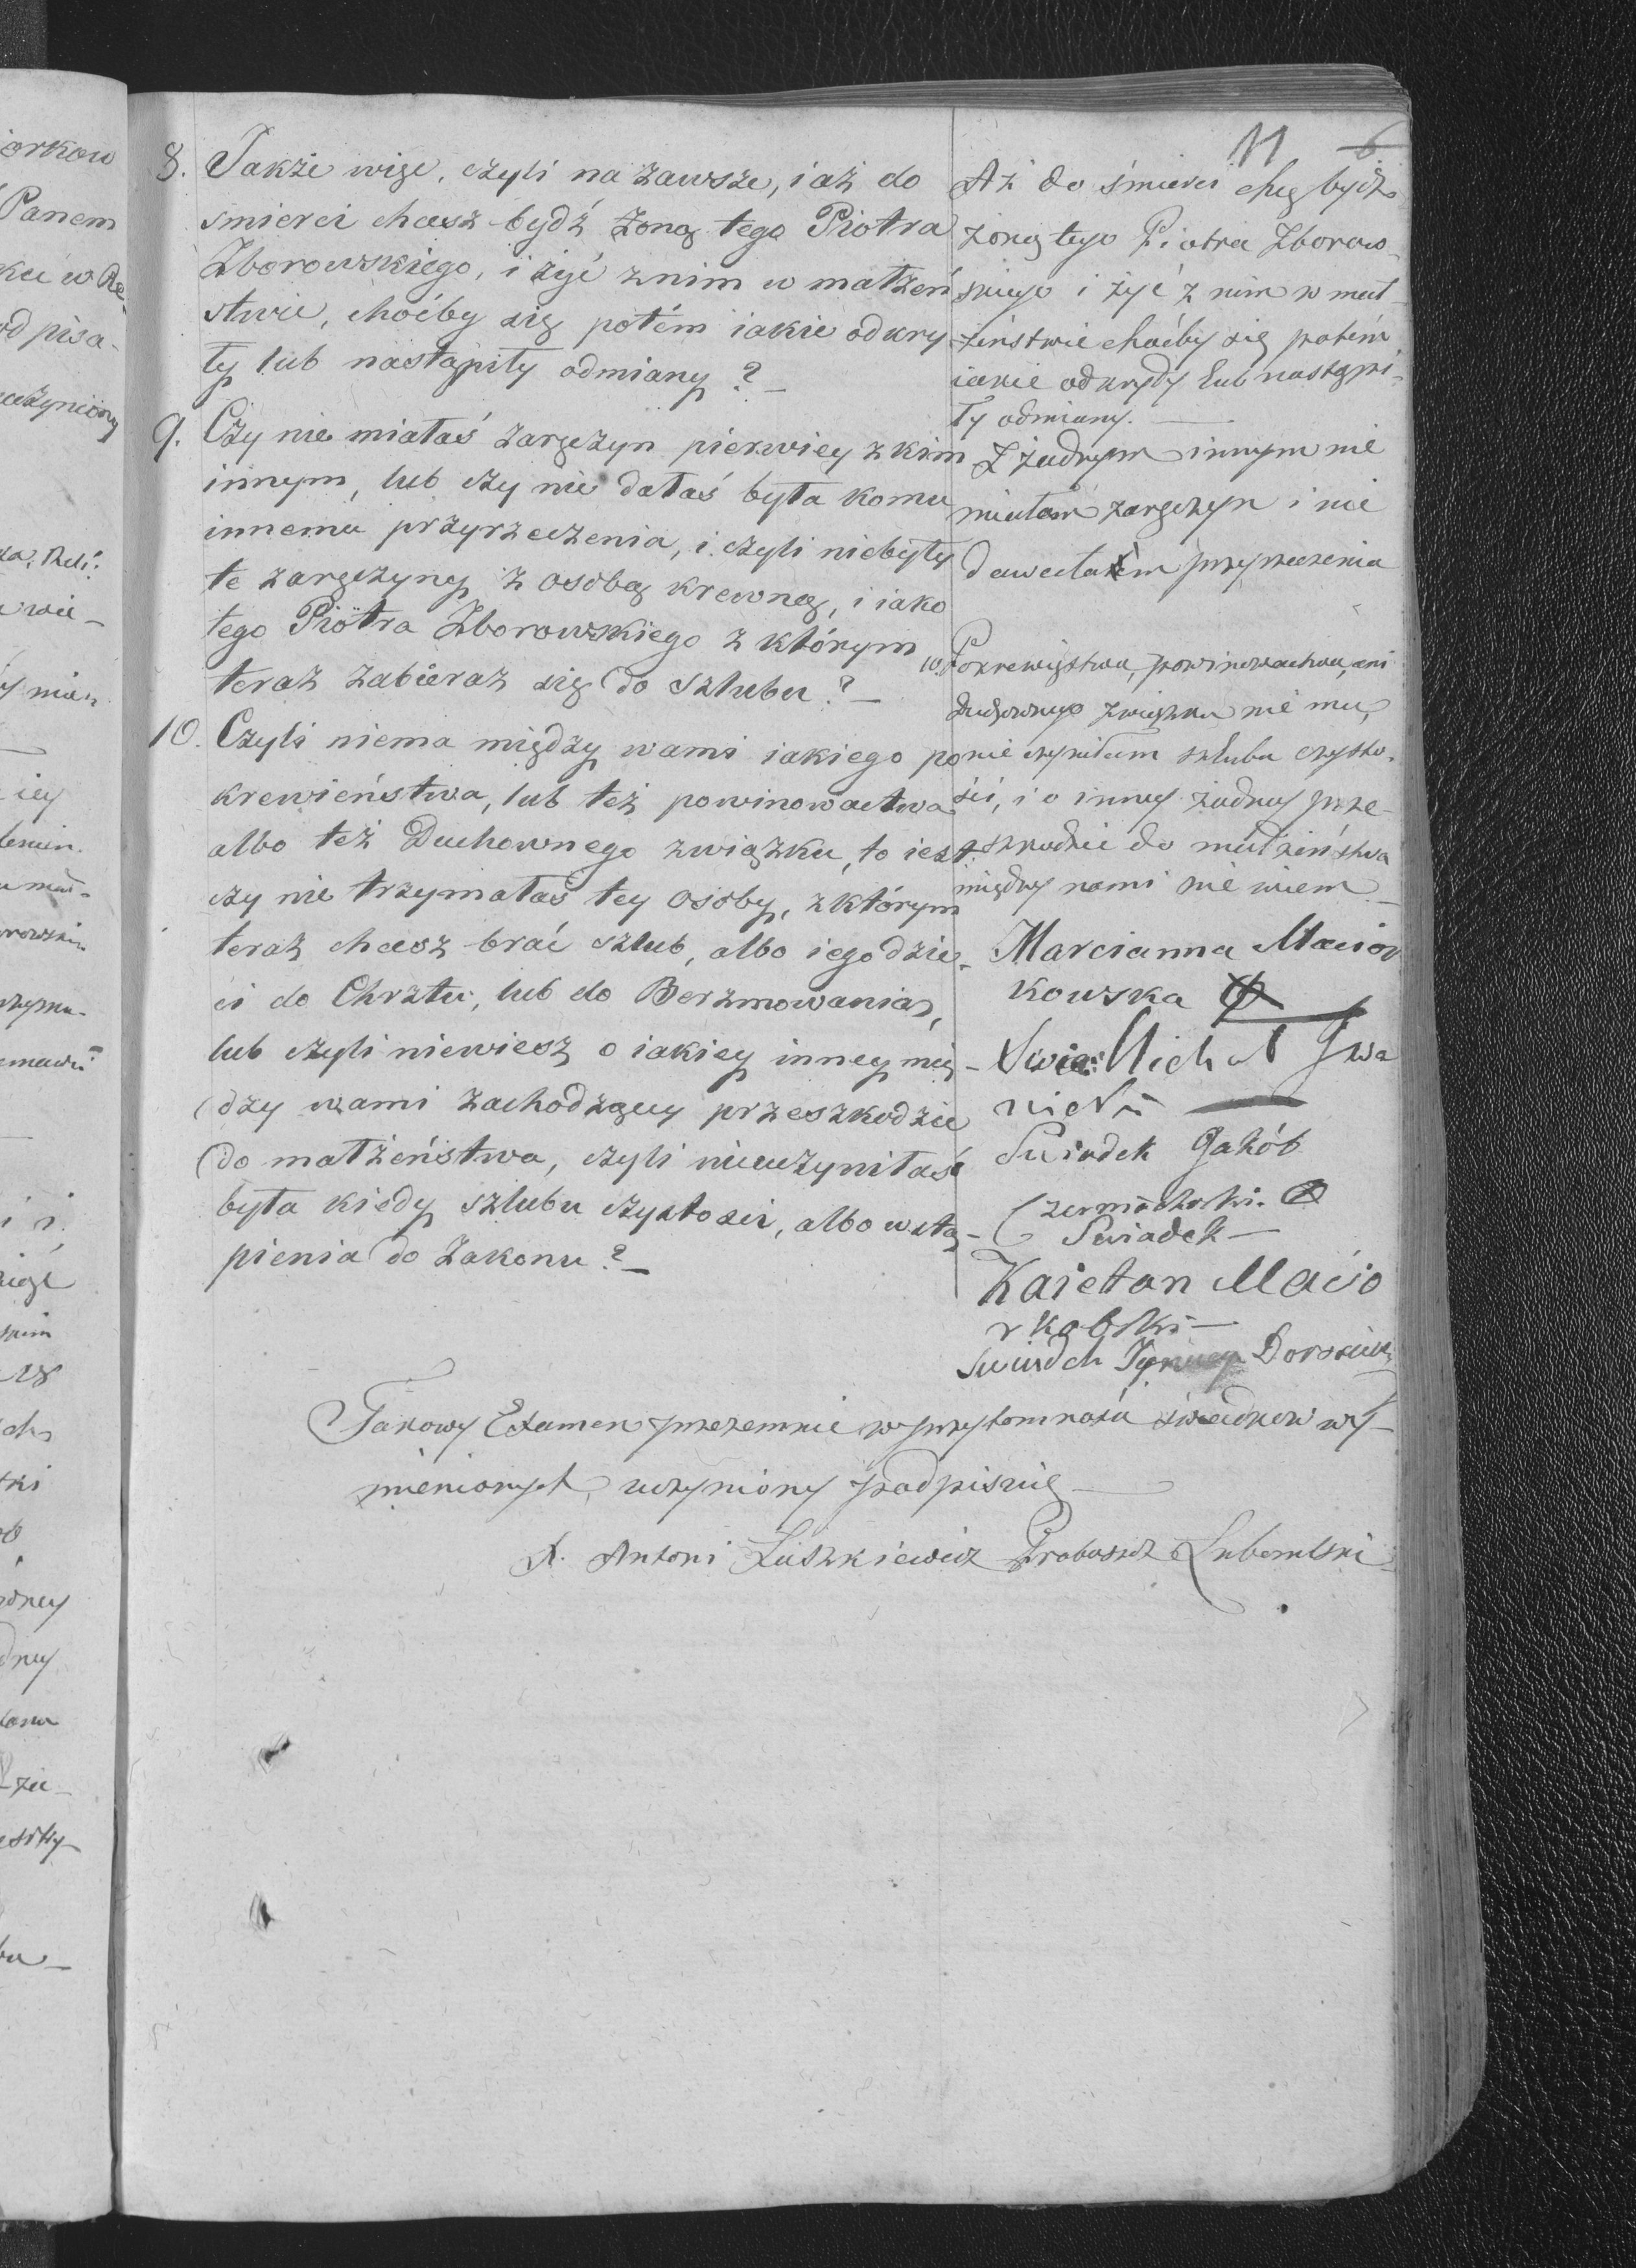 11 6
8. Takze więc, czyli na zawsze, i aż do
smierci chcesz bydź żoną tego Piotra
Zborowskiego, i żyć z nim w małżeń
stwie, choćby się potém iakie odkry
ły lub nastąpiły odmiany?
9. Czy nie miałaś zaręczyn pierwiey z kim
innym, lub czy nie dałaś była komu
innemu przyrzeczenia, i czyli niebyły
te zaręczyny z osobą krewną, i iako
tego Piotra Zborowskiego z którym
teraz zabieraz się do szlubu?
10. Czyli niema między wami iakiego po
krewieństwa, lub też powinowactwa
albo też Duchownego związku, to iest
czy nie trzymałaś tey osoby, z którym
teraz chcesz brać szlub, albo iego dzie-
ci do Chrztu, lub do Berzmowania,
lub czyli niewiesz o iakiey inney mię-
dzy wami zachodzącey przeszkodzie
do małżeństwa, czyli nieuczyniłaś
była kiedy szlubu czystosci, albo wstą-
pienia do Zakonu?
Aż do śmierci chcę bydź
żoną tego Piotra Zborow-
skiego i żyć z nim w mał-
żeństwie choćby się potém
iakie odkryły lub nastąpi-
ły odmiany.
Z żadnym innym nie
miałam zaręczyn i nie
dawałam przyrzeczenia
10. Pokrewięstwa, powinowactwa, ani
duchownego związku nie ma,
nie czyniłam szlubu czysto-
ści, i o inney żadney prze-
szkodzie do małżeństwa
między nami nie wiem
Marcianna Macior
kowska
Swia: Michał Iwa
nicki
Swiadek Jakób
Czermachoski.
Swiadek
Kaietan Macio
rkoski
Swiadek Ignacy
Takowy Examen przezemnie w przytomności świadków wy-
mienionych uczyniony podpisuię
X. Antoni Luszkiewicz Proboszcz Lubomlski